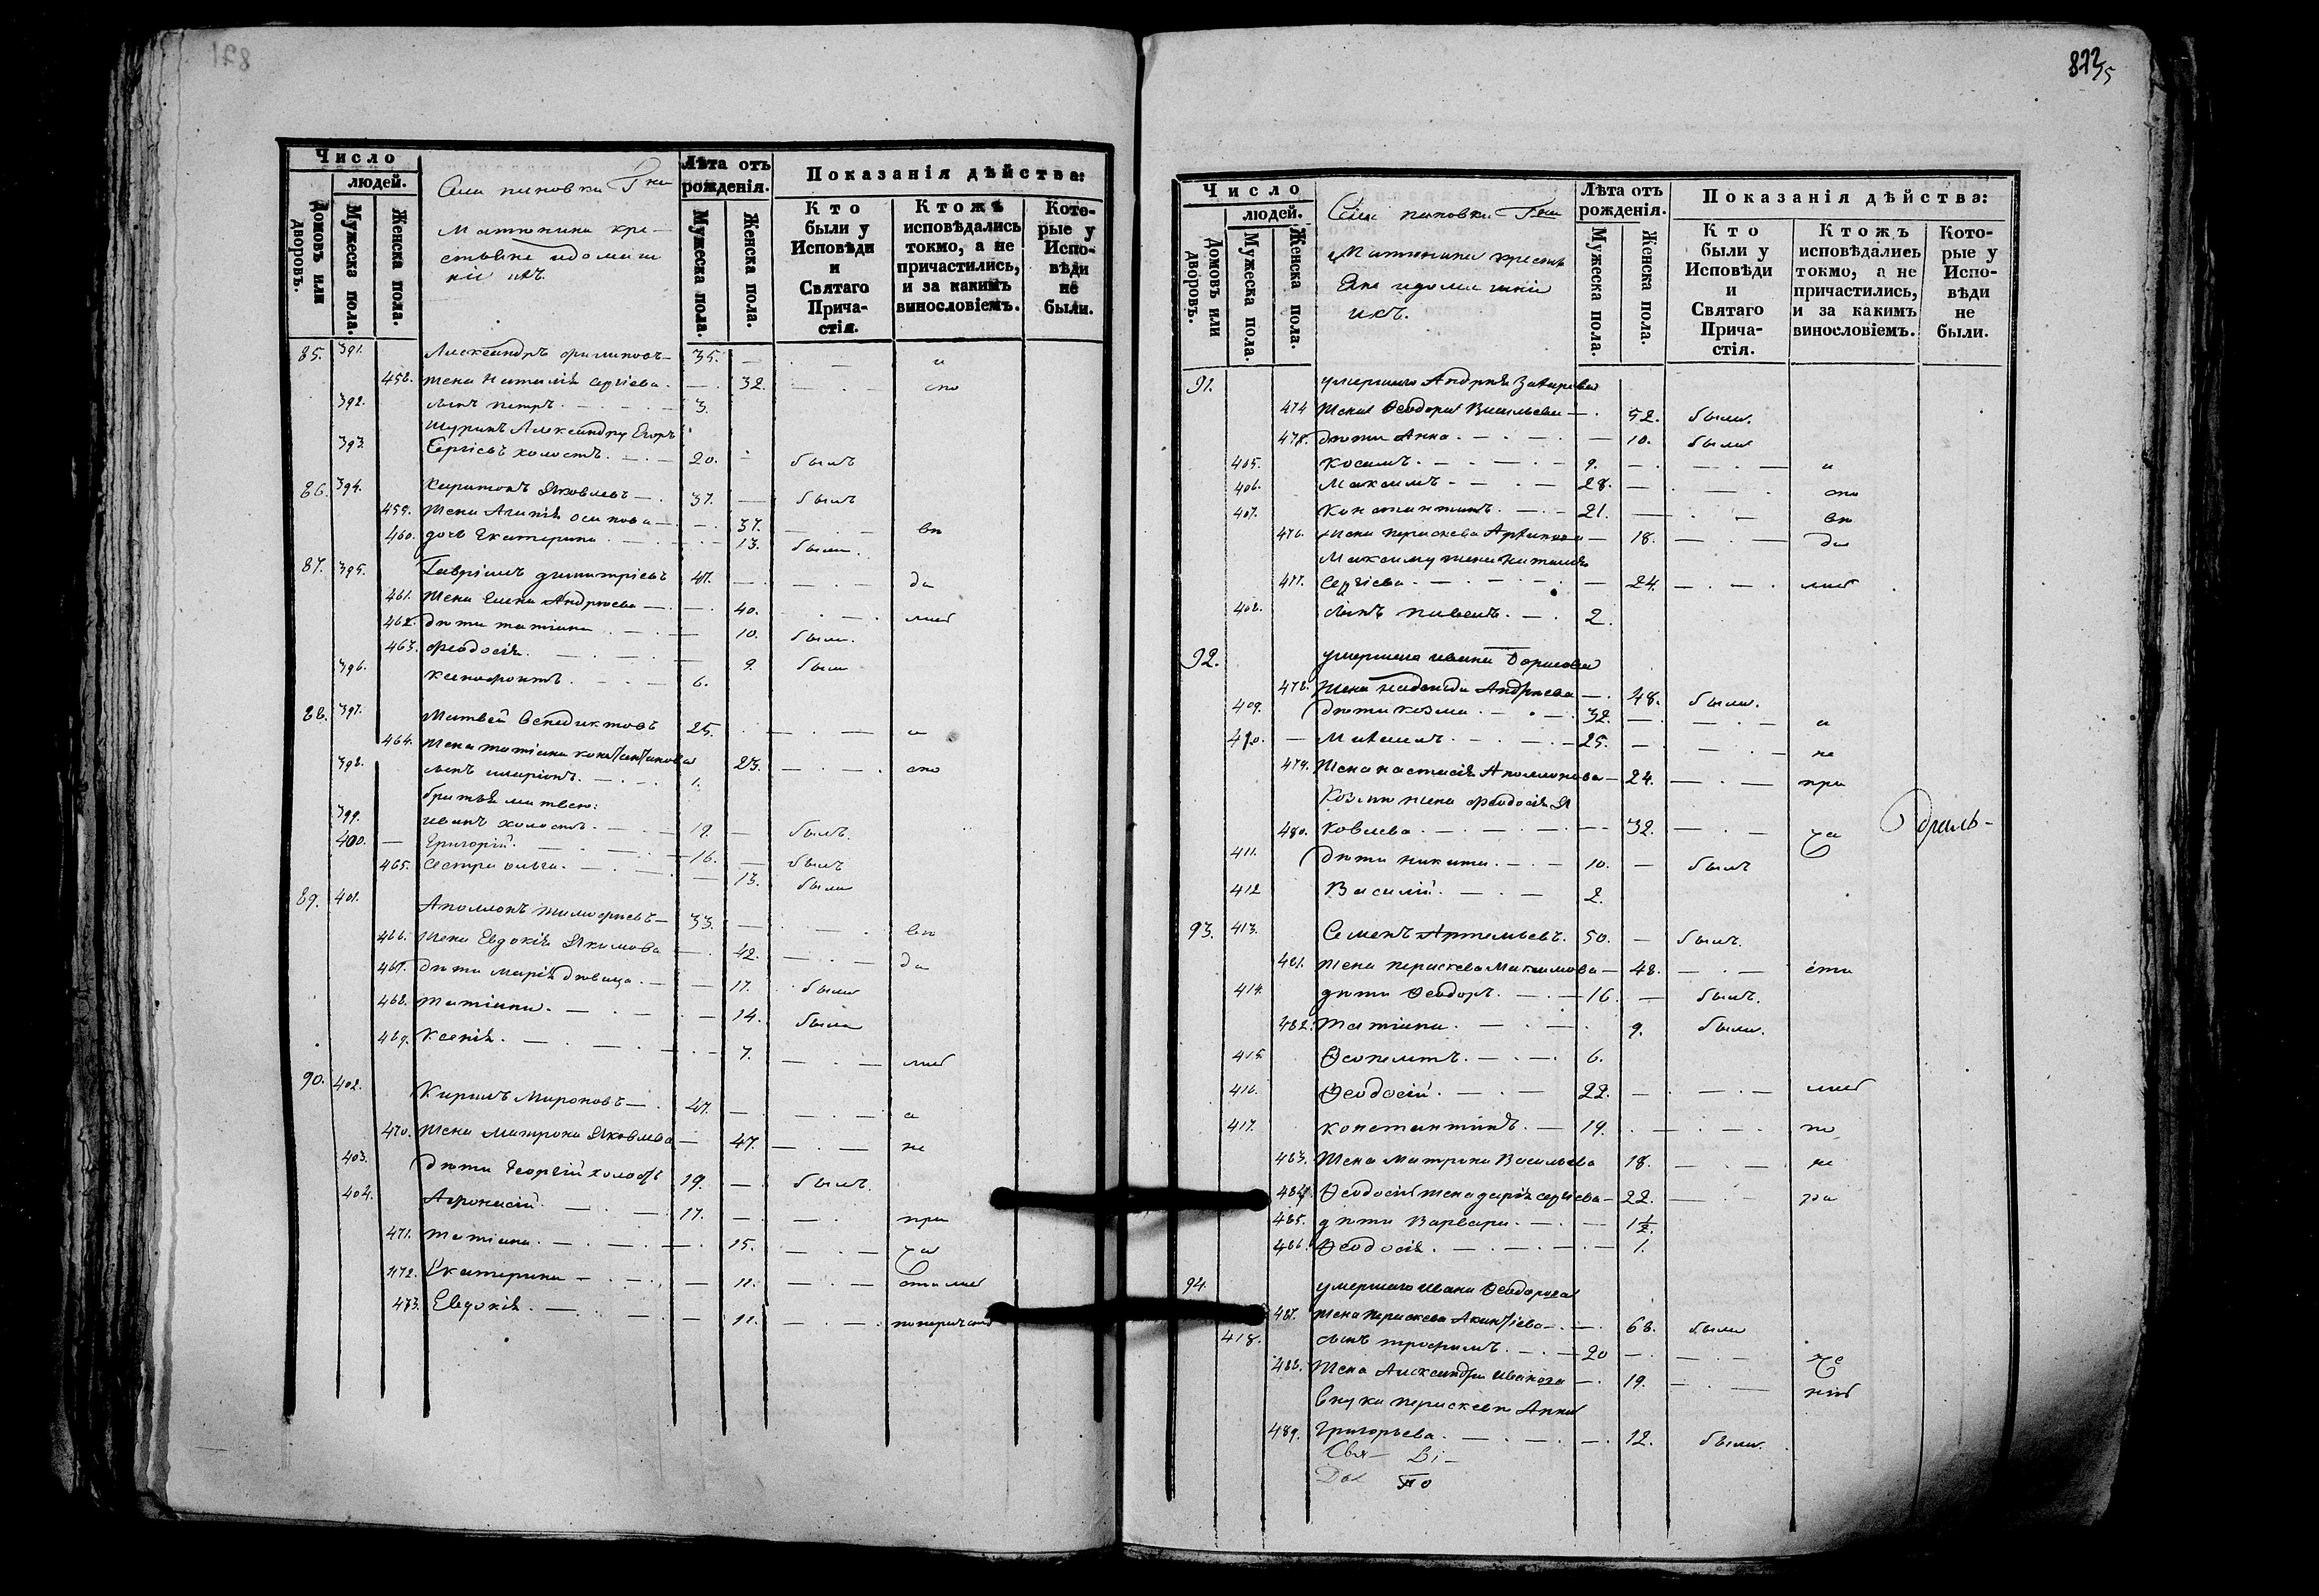 871
Число
людей.
Домовъ или дворовъ.
Мужеска пола.
Женска пола.
Села поповки Гжи
Матюнина кре-
стьяне и домаш
ніи ихъ.
Лѣта отъ
рожденія.
Мужеска пола.
Женска пола.
Показанія дѣйства:
Кто были у Исповѣди и Святаго Прича-стія.
Ктожъ исповѣдались токмо, а не причастились, и за какимъ винословіемъ.
Кото-рые у Испо-вѣди не были.
85. 391. Александръ Филиповъ — 35. — и
458. жена Наталія Сергіева — 32. — спо
392. сынъ Петръ — 3.
Шуринъ Александру Егоръ
393. Сергіевъ холостъ — 20. — былъ
86. 394. Харитонъ Яковлевъ — 37. — былъ
459. жена Агапія Осипова — 37. — вѣ
460. дочь Екатерина — 13. была.
87. 395. Гавріилъ Димитріевъ 47. — да
461. жена Елена Андреева — 40. — лис
462. дѣти Татіана — 10. была.
463. Феодосія — 9. была
396. Ксенофонтъ — 6.
88. 397. Матвей Венедиктовъ 25. — и
464. жена Татіана Константинова 23. — спо
398. сынъ Иларіонъ — 1.
братья Матвею:
399. Иванъ холостъ — 19. — былъ.
400. — Григорій — 16. — былъ
465. сестра Ольга — 13. была
89. 401. Аполлонъ Тимофеевъ — 33. — вѣ
466. жена Евдокія Якимова — 42. — да
467. дѣти Марія дѣвица — 17. была
468. Татіана — 14. была
469. Ксенія — 7. — лис
90. 402. Кирилъ Мироновъ — 47. — а
470. жена Матрона Яковлева — 47. — не
403. дѣти Георгій холостъ 19. — былъ
404. Афонасій — 17. — при
471. Татіана — 15. — ча
472. Екатерина — 11. — стилис
473. Евдокія — 11. —
873
Число
людей.
Домовъ или дворовъ.
Мужеска пола.
Женска пола.
Села поповки Гжи
Матюнина кресть
яне и домашніи
ихъ.
Лѣта отъ
рожденія.
Мужеска пола.
Женска пола.
Показанія дѣйства:
Кто были у Исповѣди и Святаго Прича-стія.
Ктожъ исповѣдались токмо, а не причастились, и за какимъ винословіемъ.
Кото-рые у Испо-вѣди не были.
91. умершаго Андрея Захарова
474 жена Ѳеодора Васильева — 52. была.
475. дѣти Анна — 10. была
405. Косьма — 9. — и
406. Максимъ — 28. — спо
407. Константинъ — 21. — вѣ
476. жена Параскева Архипова — 18. — да
Максиму жена Наталія
477. Сергіева — 24. — лис
408. сынъ Павелъ — 2.
92. умершаго Ивана Борисова
478. жена Надежда Андреева — 48. была.
409. дѣти Козма — 32. — а
410. — Михаилъ — 25. — не
479. жена Настасія Аполлонова — 24. — при
Козмѣ жена Феодосія Я
480. ковлева — 32. — ча
411. дѣти Никита — 10. — былъ
412 Василій — 2.
93. 413. Семенъ Артемьевъ. 50. — былъ.
481. жена Параскева Максимова — 48. — сти
414. дѣти Ѳеодоръ — 16. — былъ.
482. Татіана — 9. была.
415. Ѳеопемтъ — 6.
416. Ѳеодосій — 22. — лис
417. Константинъ — 19. — по
483. жена Матрона Васильева 18. — не
484. Ѳеодосія жена Дарія Сергіева — 22. — ра
485. дѣти Варвара — 1½.
486. Ѳеодосія — 1.
94. умершаго Ивана Ѳеодорова
487. жена Параскева Акинѳіева — 68. была
418. сынъ Трофимъ — 20 — че
488. жена Александра Иванова — 19. — нію
внука Параскеве Анна
489. Григорьева — 12. была.